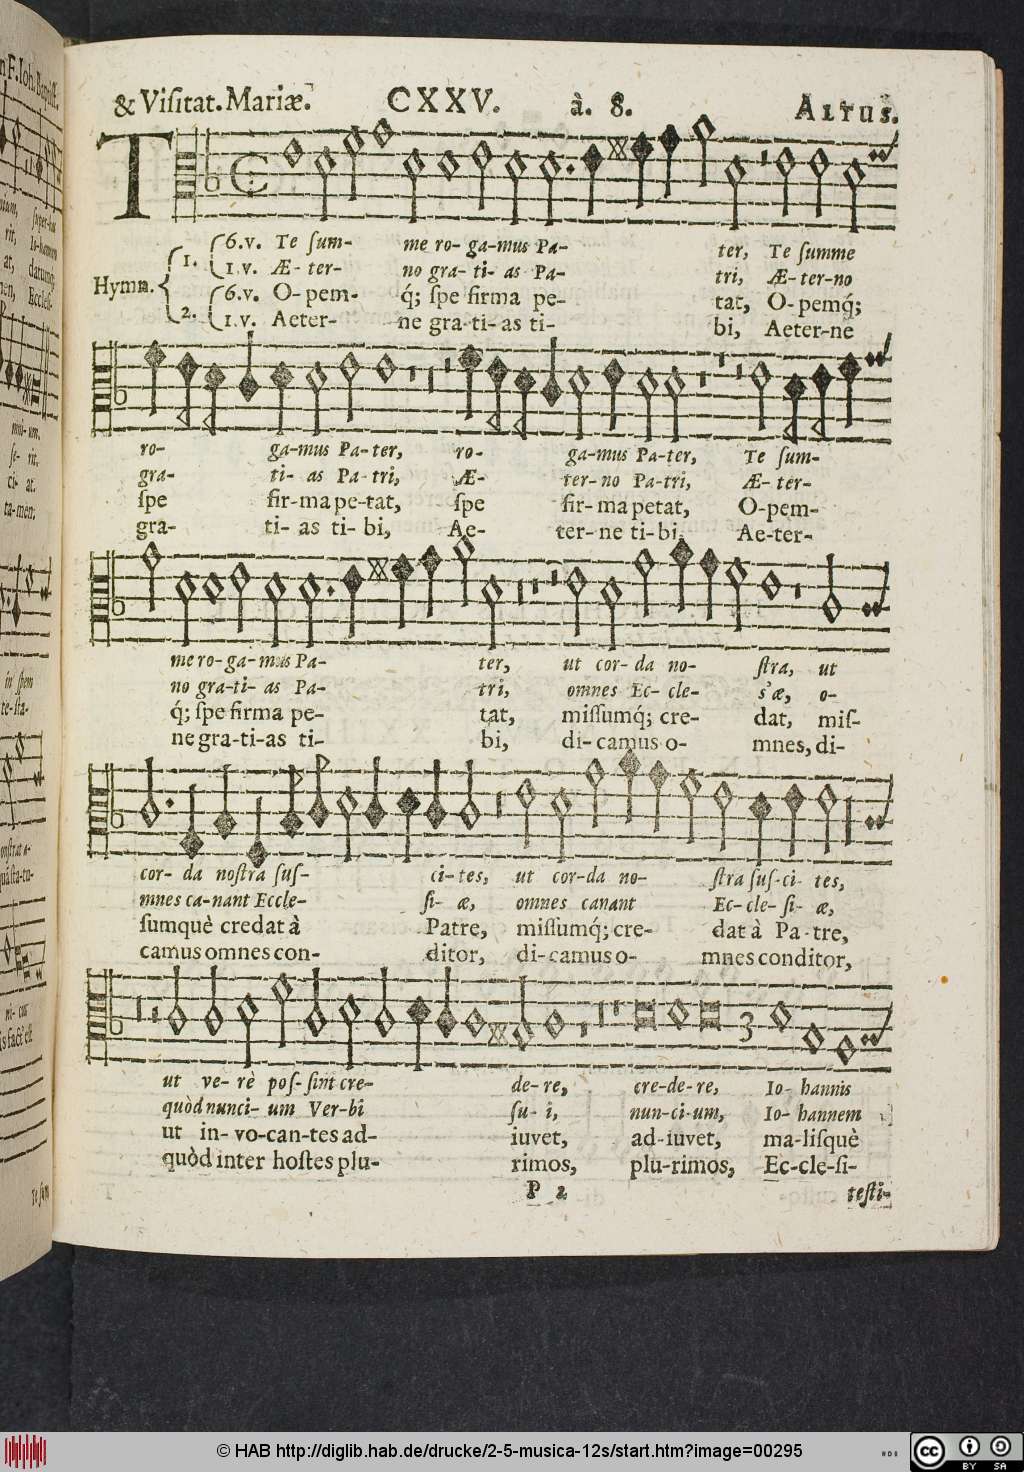 & Viſitat. Mariæ. CXXV. à. 8. ALTUS.
T
Hymn. 1. 6.v. Te ſum- me ro- ga-mus Pa- ter, Te ſumme
1.v. Æ- ter- no gra- ti- as Pa- tri, Æ-ter-no
2. 6.v. O-pem- q́; ſpe firma pe- tat, O-pemq́;
1.v. Aeter- ne gra-ti-as ti- bi, Aeter-ne
ro- ga-mus Pa-ter, ro- ga-mus Pa-ter, Te ſum-
gra- ti- as Pa-tri, Æ- ter-no Pa-tri, Æ-ter-
ſpe fir-ma pe-tat, ſpe fir-ma petat, O-pem-
gra- ti- as ti-bi, Ae- ter-ne ti-bi, Ae-ter-
me ro-ga-mus Pa- ter, ut cor-da no- ſtra, ut
no gra-ti-as Pa- tri, omnes Ec-cle- s'æ, o-
q́; ſpe firma pe- tat, miſſumq́; cre- dat, miſ-
ne gra-ti-as ti- bi, di-camus o- mnes, di-
cor- da noſtra ſuſ- ci-tes, ut cor-da no- ſtra ſuſ-ci- tes,
mnes ca-nant Eccle- ſi- æ, omnes canant Ec-cle-ſi- æ,
ſumquè credat à Patre, miſſumq́; cre- dat à Pa-tre,
camus omnes con- ditor, di-camus o- mnes conditor,
3
ut ve-rè poſ-ſint cre- de-re, cre-de-re, Io-hannis
quòd nunci- um Ver-bi ſu- i, nun-ci-um, Io-hannem
ut in-vo-can-tes ad- iuvet, ad-iuvet, ma-liſquè
quòd inter hoſtes plu- rimos, plu-rimos, Ec-cle-ſi-
P 2 teſti-
© HAB http://diglib.hab.de/drucke/2-5-musica-12s/start.htm?image=00295
cc BY SA